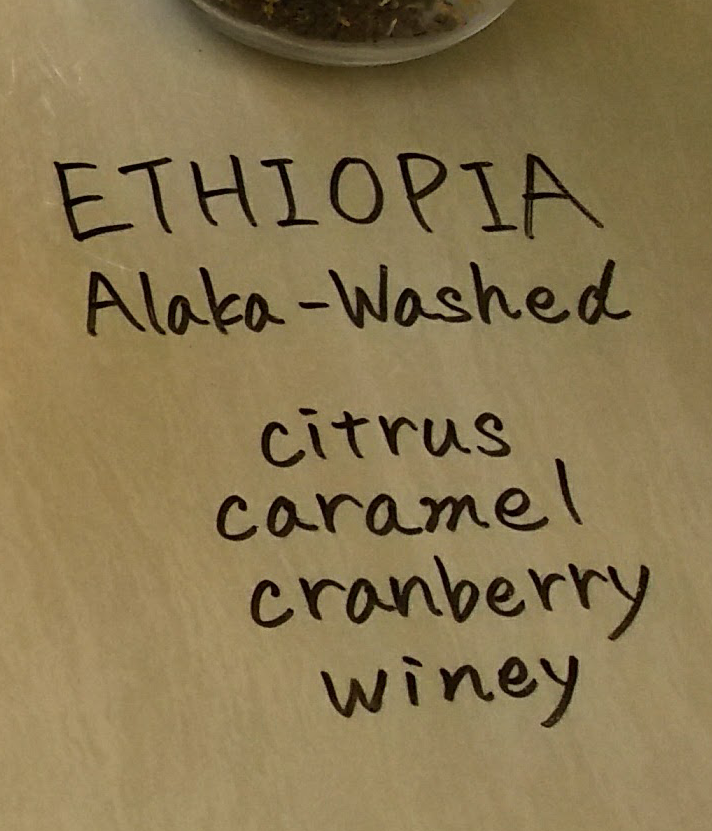 ETHIOPIA
Alaka-Washed
citrus
caramel
cranberry
winey